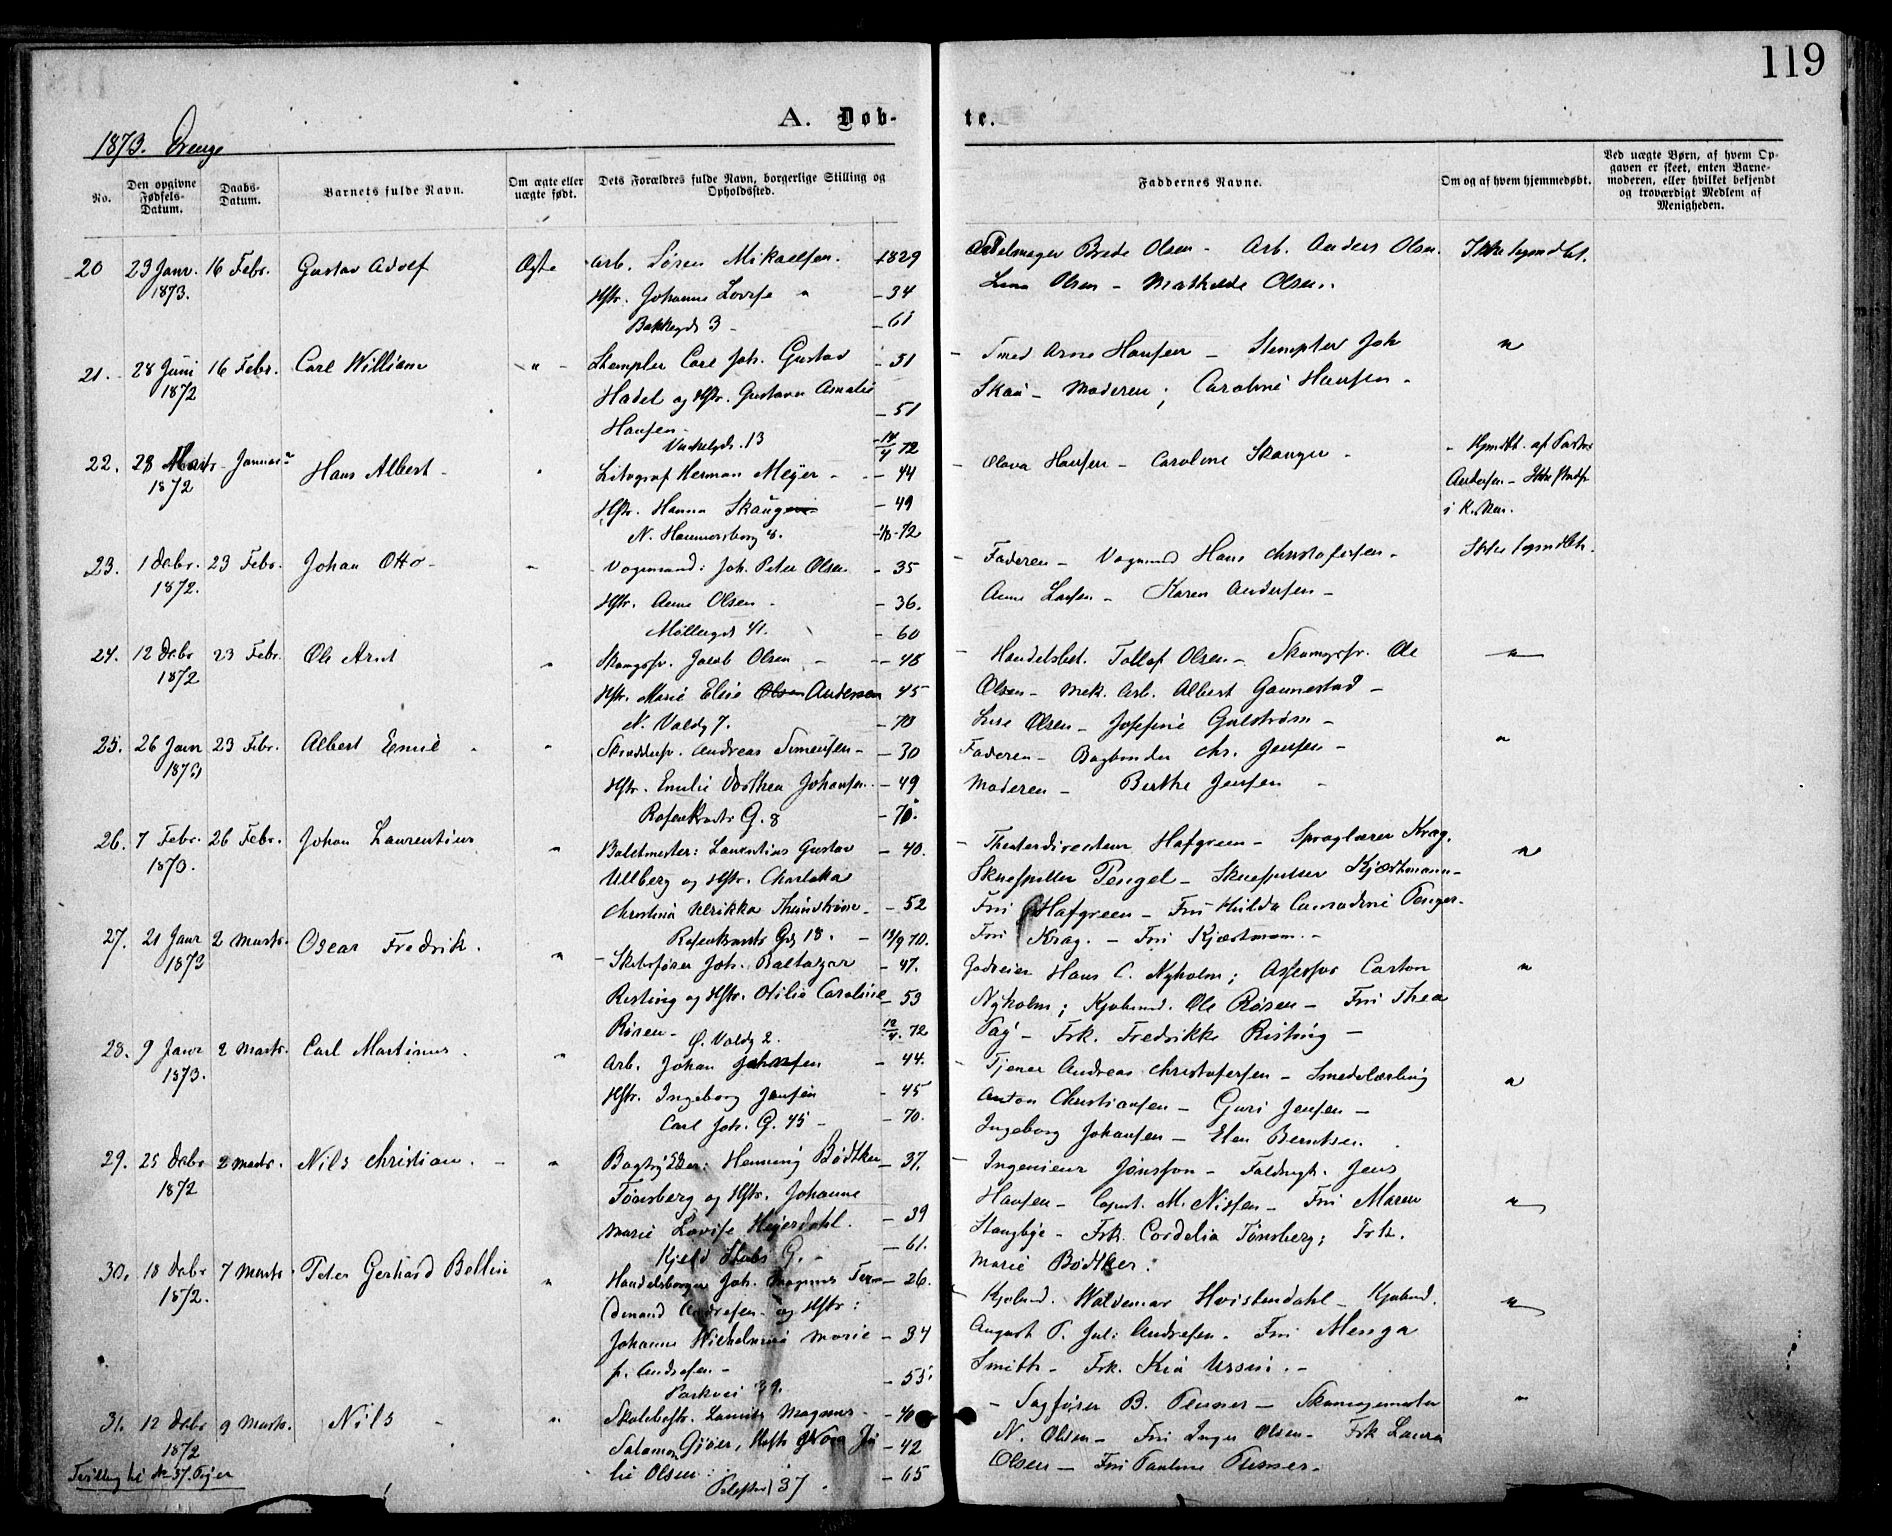 119
A. Døb-
te.
1873. Drenge
No.
Den opgivne Fødsels-Datum.
Daabs-Datum.
Barnets fulde Navn.
Om ægte eller uægte født.
Dets Forældres fulde Navn, borgerlige Stilling og Opholdssted.
Faddernes Navne.
Om og af hvem hjemmedøbt.
Ved uægte Børn, af hvem Op-
gaven er skeet, enten Barne-
moderen, eller hvilket bekjendt
og troværdigt Medlem af
Menigheden.
20 29 Janr. 16 Febr. Gustav Adolf Ægte Arb. Søren Mikaelsen. 1829 Brede Olsen - Arb. Anders Olsen.
1873. Hstr. Johanne Lovise " - 34 Lina Olsen - Mathilde Olsen.
Bakkegd 3 - - 61
21. 28 Juni 16 Febr. Carl William " Stempler Carl Joh. Gustav - 51 - Smed Arne Hansen - Stempler Joh "
1872 Hadel og Hstr. Gustava Amalie - 51 Skau - Moderen; Caroline Hansen -
Hansen -
13 - 14/4 72
22. 28 Marts Januar Hans Albert - " Litograf Herman Meyer - - 44 - Olava Hansen - Caroline Skauger -
1872 Hstr. Hanna Skaug - 49 Andersen -
N. Hammersborg 8. - 72 i Kirken.
23. 1 Debr. 23 Febr. Johan Otto - " - Vognmand: Joh. Peter Olsen - 35 - Faderen - Vognmd Hans Christofersen -
1872. Hstr. Anne Olsen - - 36. Anne Larsen - Karen Andersen -
Møllergd 41. - 60
24. 12 Debr 23 Febr. Ole Arnt " Skomgrsv. Jacob Olsen - - 48 - Handelsbet. Tollof Olsen - Skomgrsv. Ole "
1872 Hstr. Marie Elise Olsen Andersen 45 Olsen - Mek. Arb. Albert Gaunestad -
N. Valdg 7. - 70 Lise Olsen - Josefine Gulstrøm -
25. 26 Janr 23 Febr. Albert Emil - " Skræddersv. Andreas Simensen - - 30 Faderen - Bogbinder Chr. Jensen - "
1873 Hstr. Emilie Dorthea Johansen - 49 Moderen - Berthe Jensen -
Rosenkrants G. 8 - 70.
26. 7 Febr. 26 Febr. Johan Laurentius " Baletmester: Laurentius Gustav - 40. - Theaterdirecteur Hafgreen - Sproglærer Krag. "
1873. Ullberg og Hstr. Charlotta Skuespiller Pengel - Skuespiller Kjærtmann -
Christina Ulrikka Thunstrøm - - 52 Fru Hafgreen - Fru Hulda
Rosenkrants Gd 18. - 13/9 70. Fru Krag. - Fru Kjærtmann. -
27. 21 Janr 2 Marts. Oscar Fredrik. " - Skibsfører Joh. Baltazar - 47. Gadeeier Hans C. Nyholm; Assessor Carton "
1873 Risting og Hstr. Otilie Caroline - 53 Nyholm; Kjøbmd. Ole Rosen - Fru Thea
Rosen - Ø. Valdg 2. 12/4. 72 - Frk. Fredrikke Risting -
28. 9 Janr 2 Marts. Carl Martinus. " Arb. Johan Johansen - 44. - Tjener Andreas Christofersen - Smedelærling "
1873. Hstr. Ingeborg Jensen - 45 Anton Christiansen - Guri Jensen -
Carl Joh. G. 45 - - 70. Ingeborg Johansen - Elen Berntsen.
29. 25 Debr 2 Marts. Nils Christian. - " Bogtrykker: Henning Bødtker - 37. - Ingenieur Jonsson - Jens
1872 Tønsberg og Hstr. Johanne Hansen - Capt. M. Nissen - Fru Maren "
Marie Lovise Heyerdahl. - 39 Stangbye - Frk. Cordelia Tønsberg; Frk.
Kjeld Stubs G. - - 61. Marie Bødtker.
30. 18 Debr 7 Marts. Peter Gerhard Bellin " Handelsborger Joh. Magnus Fer- - 26. - Kjøbmd. Waldemar Hvistendahl - Kjøbmd. "
1872. dinand Andresen - og Hstr: August T. Jul: Andresen - Fru Menga
Johanne Wilhelmine Marie - 34 Smith - Frk. Kia Ursin. -
f. Andresen -
Parkvei 39. - 55.
31. 12 Debr 9 Marts. Nils - " Skolebestr. Lauritz Magnus - - 40 - Sagfører B. Tusner - Skomagermester "
1872 Salamon Gjøer, Hstr Nora Ju - 42 N. Olsen - Fru Inger Olsen - Frk Laura
lie Olsen: 37. - 65 Olsen - Fru Pauline Tusner -
Tvilling til No 37. Piger